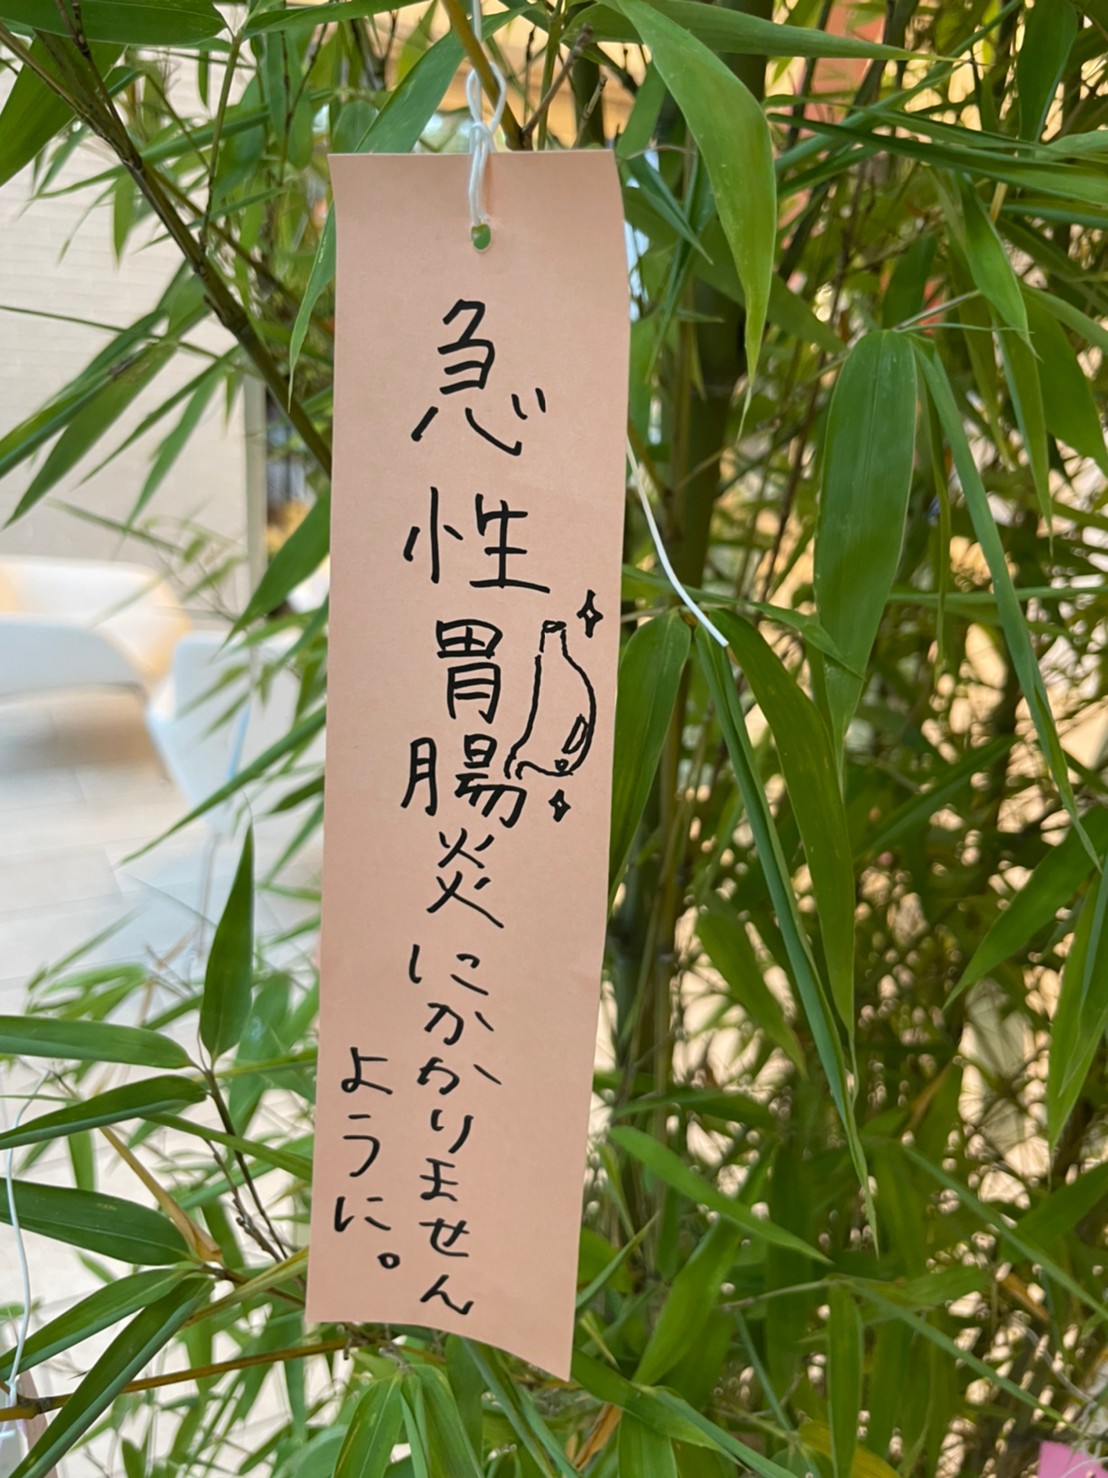 急性胃腸炎にかかりません
ように。